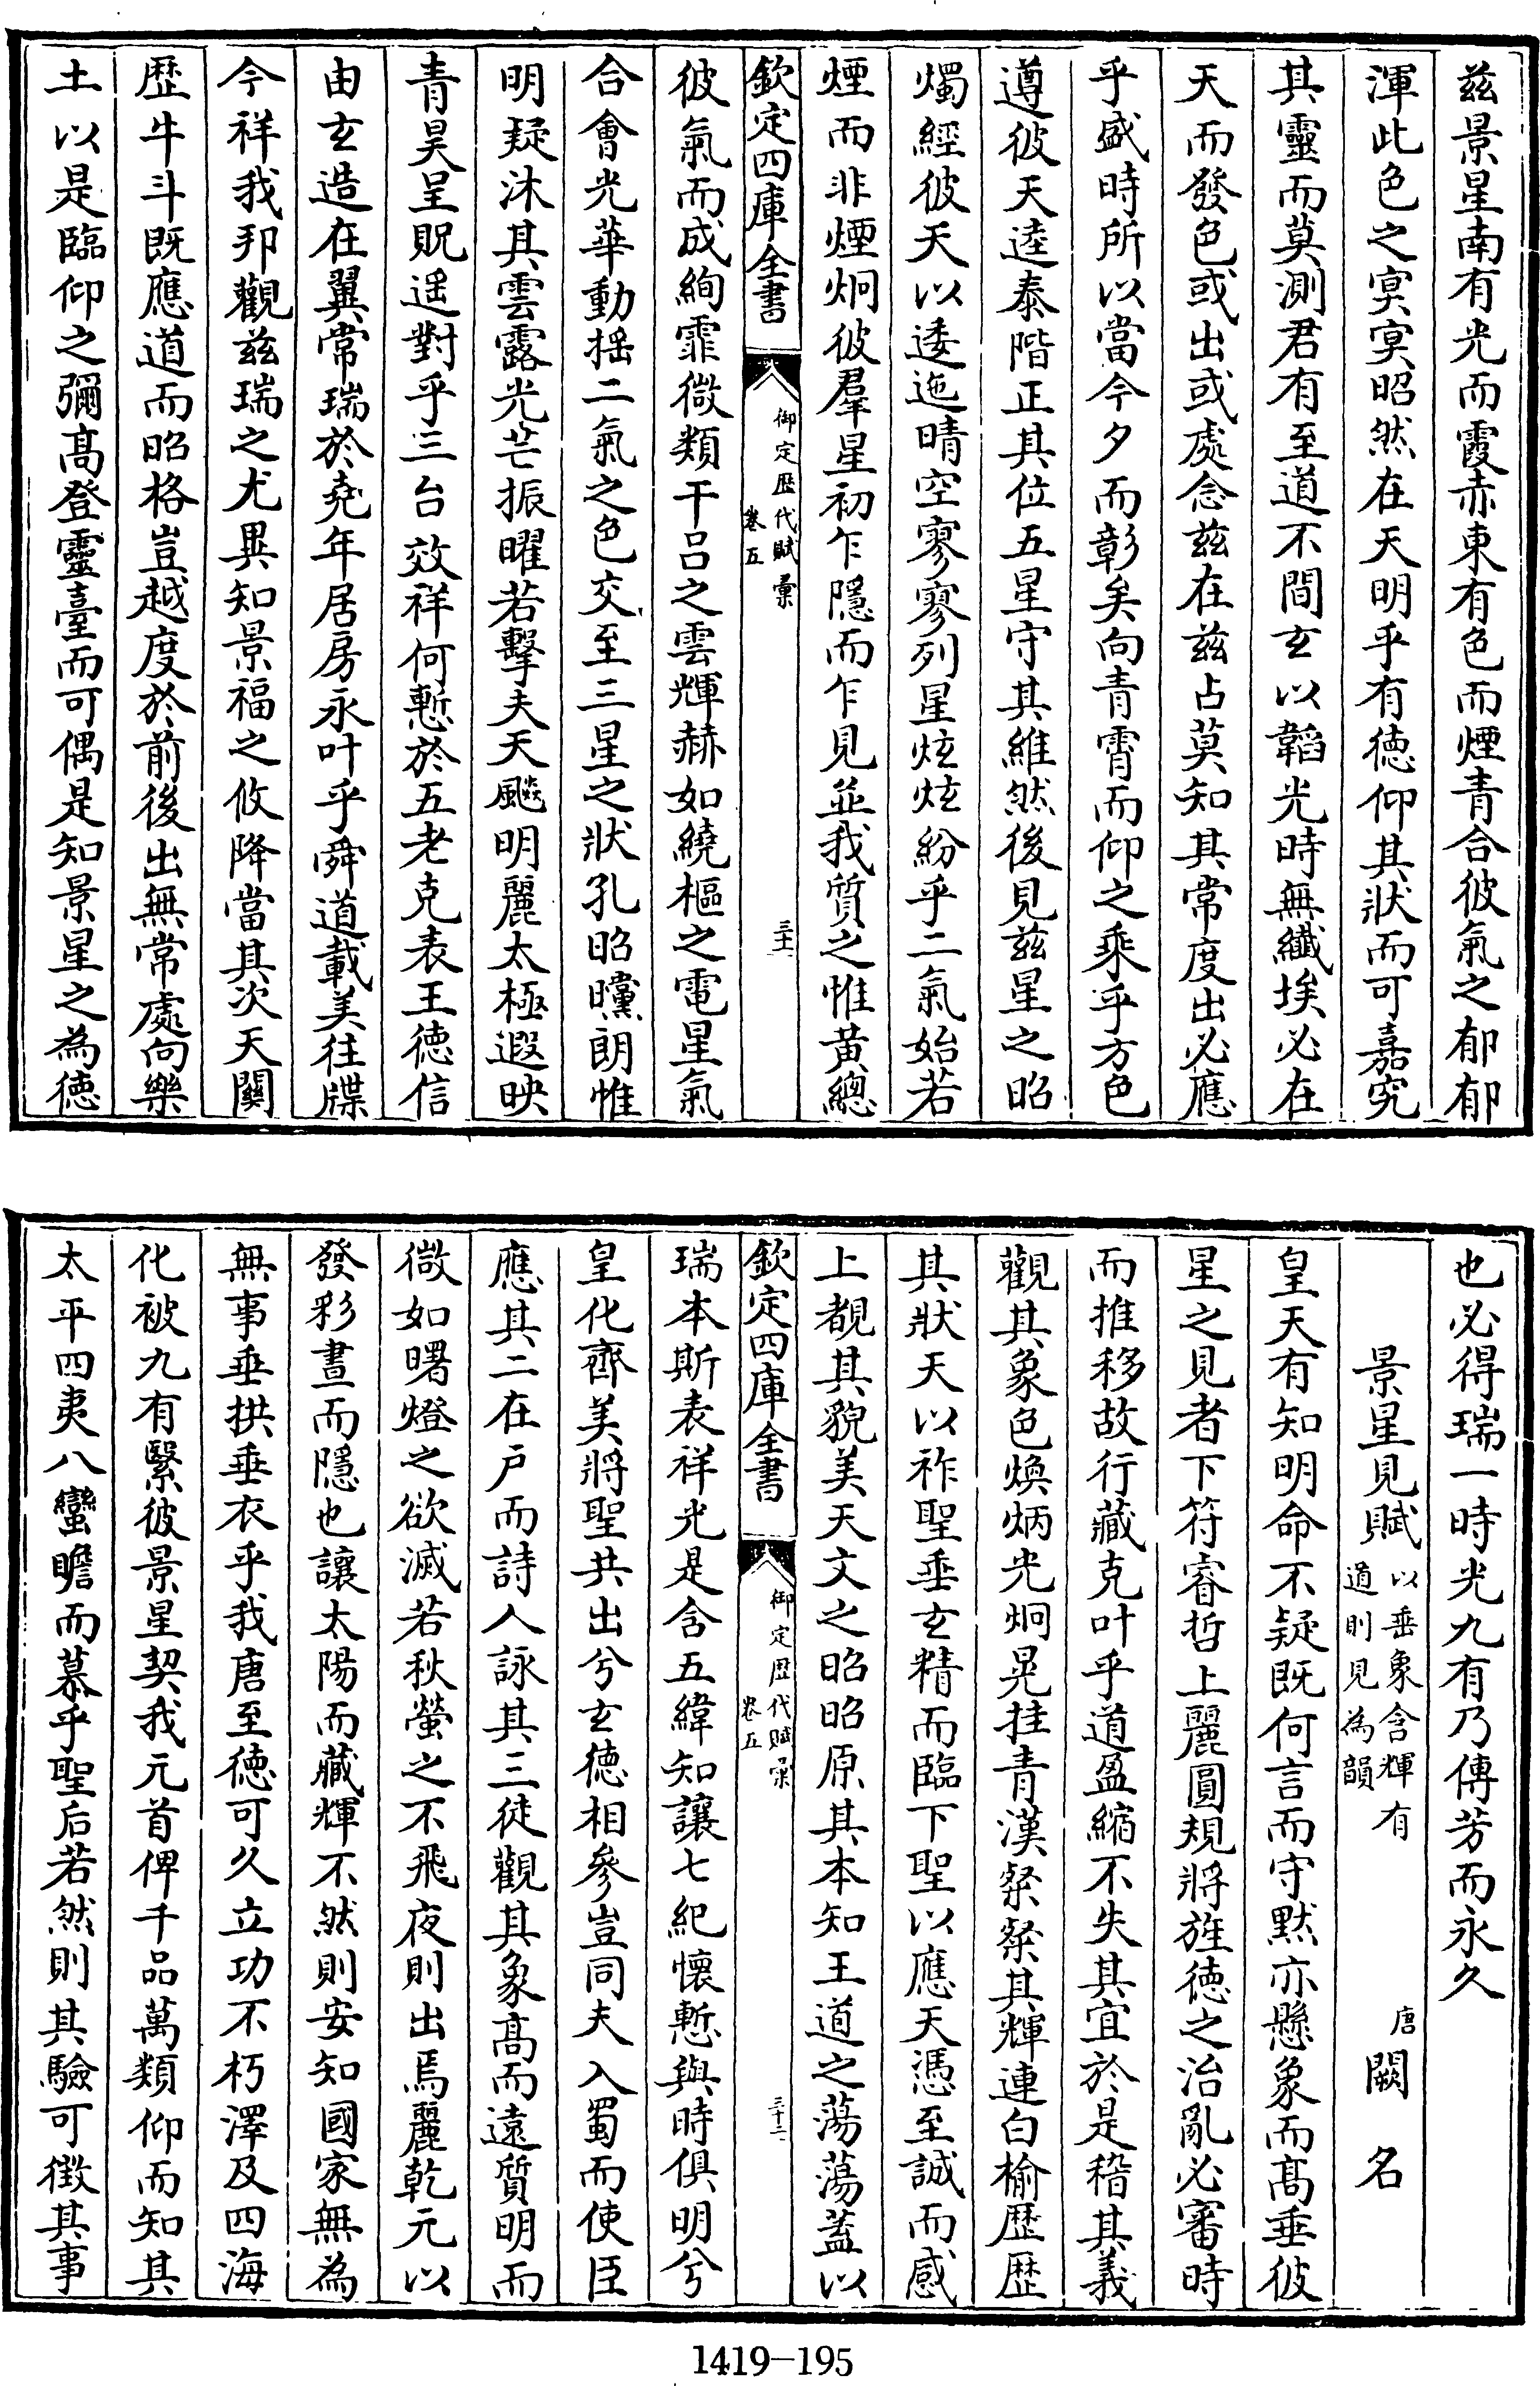 兹景星南有光而霞赤東有色而煙青合彼氣之郁郁
渾此色之㝠㝠昭然在天明乎有徳仰其狀而可嘉究
其靈而莫測君有至道不間玄以韜光時無纖埃必在
天而發色或出或處念兹在兹占莫知其常度出必應
乎盛時所以當今夕而彰矣向青霄而仰之乘乎方色
遵彼天逵泰階正其位五星守其維然後見兹星之昭
燭經彼天以逶迤晴空寥寥列星炫炫紛乎二氣始若
煙而非煙炯彼羣星初乍隱而乍見並我質之惟黃總
欽定四庫全書
御定歴代賦彙
卷五
三十一
彼氣而成絢霏微類干呂之雲輝赫如繞樞之電星氣
合會光華動揺二氣之色交至三星之狀孔昭曭朗惟
明疑沐其雲露光芒振曜若擊夫天飈明麗太極遐映
青昊呈貺遥對乎三台效祥何慙於五老克表王徳信
由玄造在翼常瑞於堯年居房永叶乎舜道載美往牒
今祥我邦觀兹瑞之尤異知景福之攸降當其次天闗
歴牛斗既應道而昭格豈越度於前後出無常處向樂
土以是臨仰之彌髙登靈臺而可偶是知景星之為徳
也必得瑞一時光九有乃傳芳而永久
景星見賦
以垂象含輝有
道則見為韻
唐
闕名
皇天有知明命不疑既何言而守黙亦懸象而髙垂彼
星之見者下符睿哲上麗圓規將旌徳之治亂必審時
而推移故行藏克叶乎道盈縮不失其宜於是稽其義
觀其象色煥炳光炯晃挂青漢粲粲其輝連白榆歴歴
其狀天以祚聖垂玄精而臨下聖以應天憑至誠而感
上覩其貌美天文之昭昭原其本知王道之蕩蕩蓋以
欽定四庫全書
御定歴代賦彙
卷五
三十二
瑞本斯表祥光是含五緯知讓七紀懷慙與時俱明兮
皇化齊美將聖共出兮玄徳相參豈同夫入蜀而使臣
應其二在戶而詩人詠其三徒觀其象髙而遠質明而
微如曙燈之欲滅若秋螢之不飛夜則出焉麗乾元以
發彩晝而隱也讓太陽而藏輝不然則安知國家無為
無事垂拱垂衣乎我唐至徳可久立功不朽澤及四海
化被九有緊彼景星契我元首俾千品萬類仰而知其
太平四夷八蠻瞻而慕乎聖后若然則其驗可徴其事
1419-195